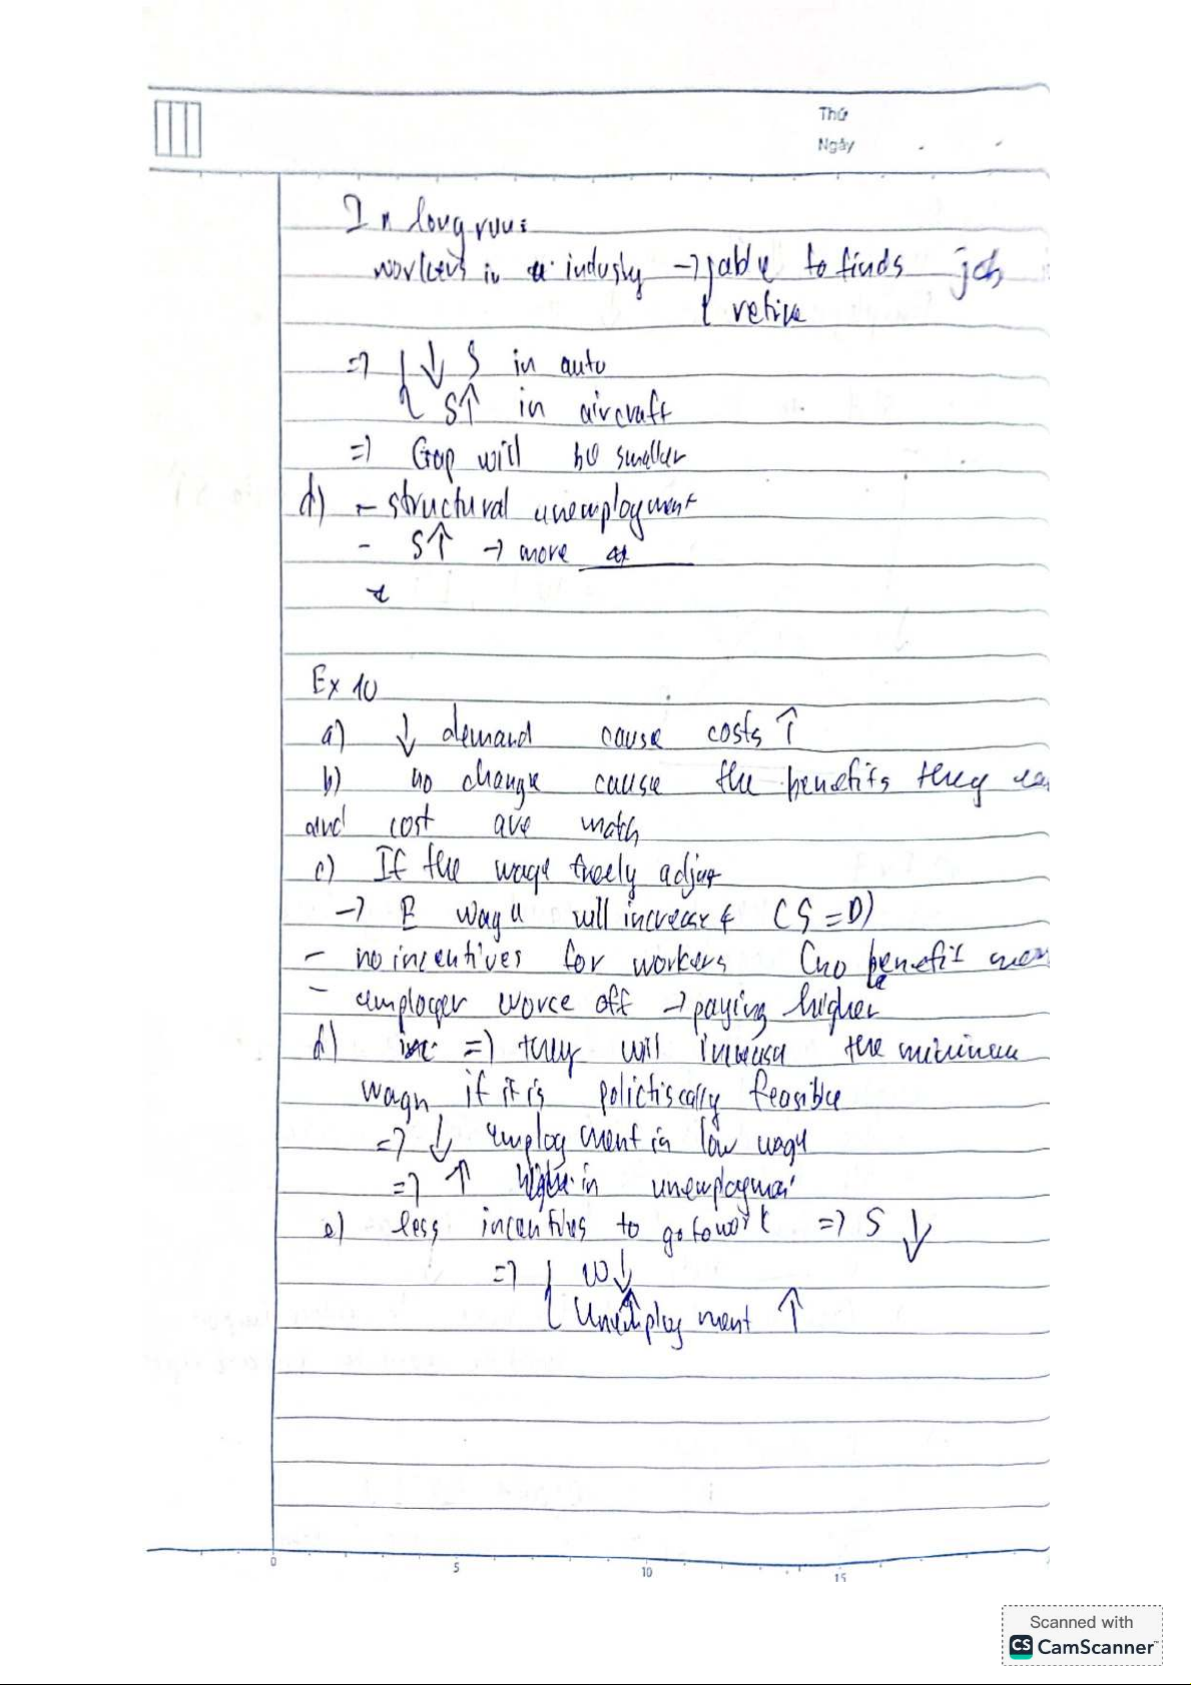 Thứ
Ngày
In long run:
workers in industry → able to finds job
retire
=> ↓ S in auto
S↑ in aircraft
=> Gap will be smaller
d) - structural unemployment
- S↑ → more
Ex 10
a) ↓ demand cause costs ↑
b) no change cause the benefits they
and cost are match
c) If the wage freely adjust
→ E wage will increase (S = D)
- no incentives for workers (no benefit
- employer worce off → paying higher
d) => they will increase the minimum
wage if it is polictiscally feasible
=> ↓ employment in low wage
=> ↑ in unemployment
e) less incentives to go to work => S ↓
=> W
Unemployment ↑
0 5 10 15
Scanned with
CS CamScanner